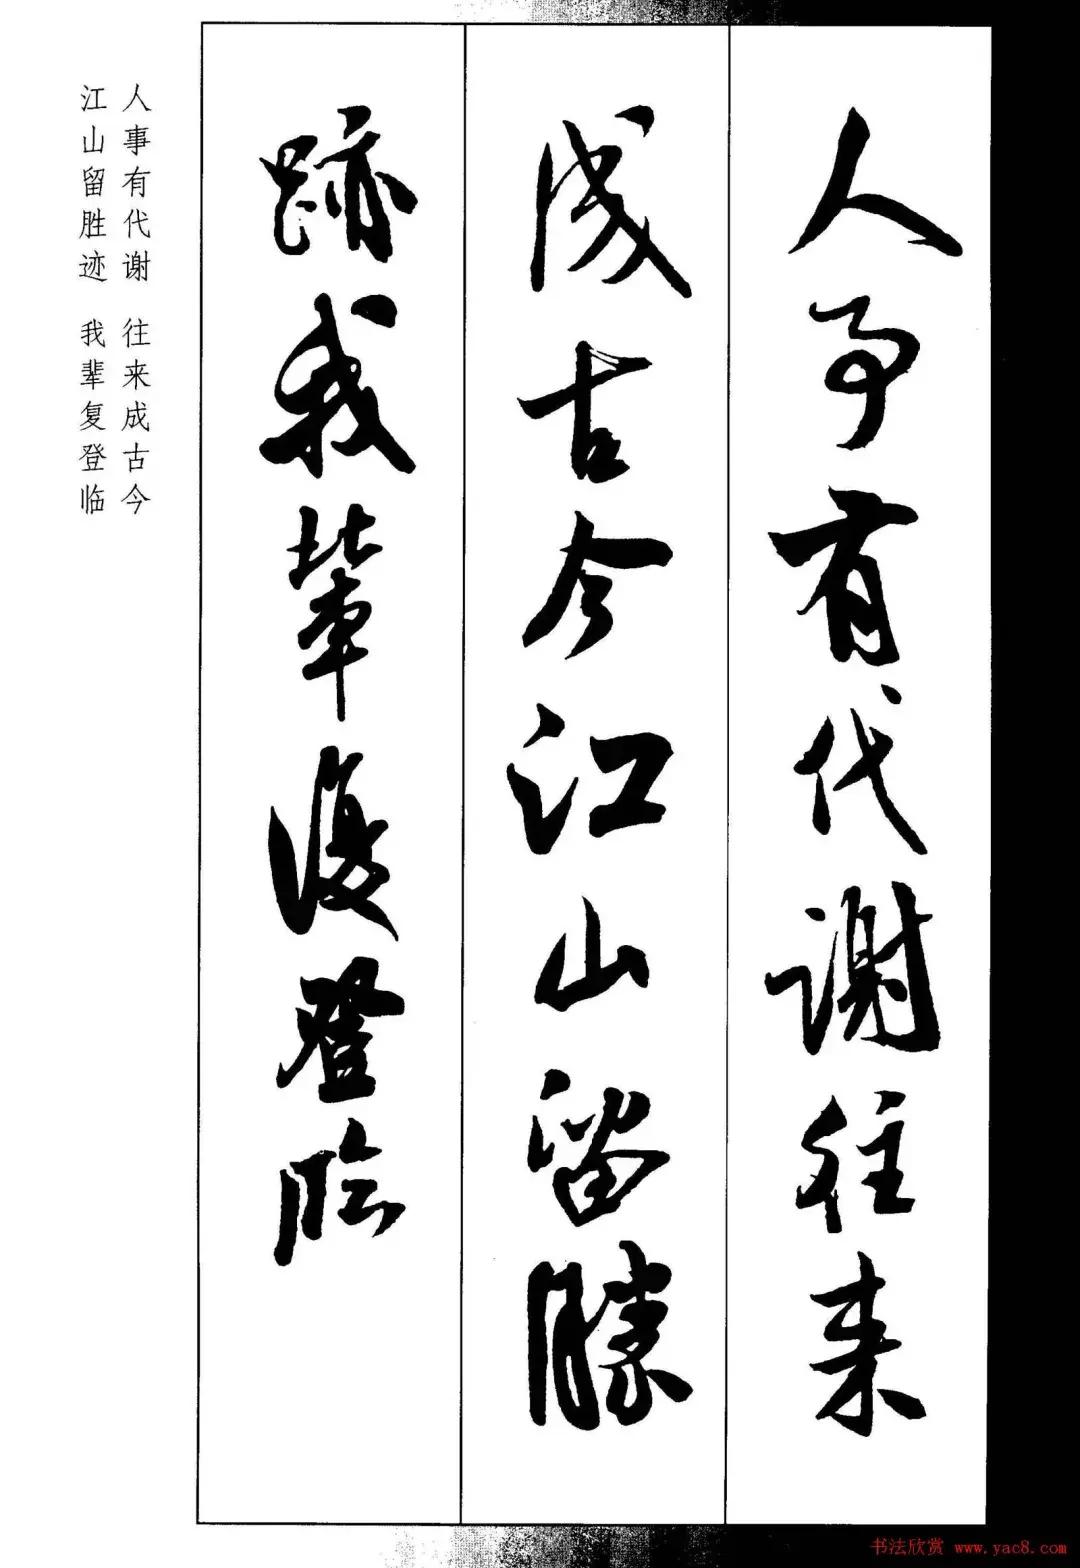 人事有代谢往来
成古今江山留勝
跡我輩復登臨
人事有代谢 往来成古今
江山留胜迹 我辈复登临
书法欣赏 www.yac8.com